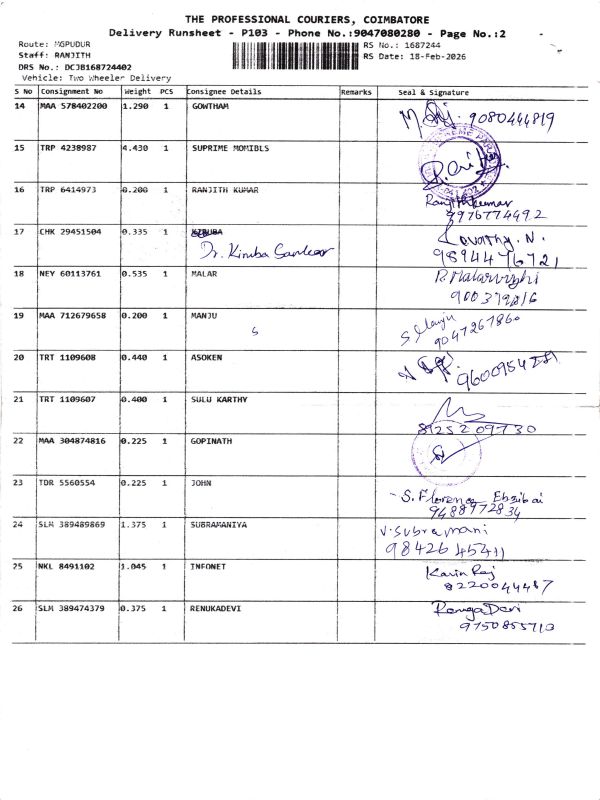 THE PROFESSIONAL COURIERS, COIMBATORE
Delivery Runsheet - P103 - Phone No.:9047080280 - Page No.:2
Route: MGPUDUR RS No.: 1687244
Staff: RANJITH RS Date: 18-Feb-2026
DRS No.: DCJB168724402
Vehicle: Two Wheeler Delivery
S No Consignment No Weight PCS Consignee Details Remarks Seal & Signature
14 MAA 578402200 1.290 1 GOWTHAM 9080444819
15 TRP 4238987 4.430 1 SUPRIME MOMIBLS
16 TRP 6414973 0.200 1 RANJITH KUMAR Ranjithkumar
7976774492
17 CHK 29451504 0.335 1 KIRUBA N.
Dr. Kiruba Sankar 9894476721
18 NEY 60113761 0.535 1 MALAR P. Malarvizhi
19 MAA 712679658 0.200 1 MANJU S Manju
S 9047267860
20 TRT 1109608 0.440 1 ASOKEN
21 TRT 1109607 0.400 1 SULU KARTHY
8125209730
22 MAA 304874816 0.225 1 GOPINATH
23 TDR 5560554 0.225 1 JOHN S. Florence Ebzibai
9488972834
24 SLM 389489869 1.375 1 SUBRAMANIYA V. Subramani
98426 45411
25 NKL 8491102 1.045 1 INFONET Kavin Raj
8220044487
26 SLM 389474379 0.375 1 RENUKADEVI RenugaDevi
9750855713